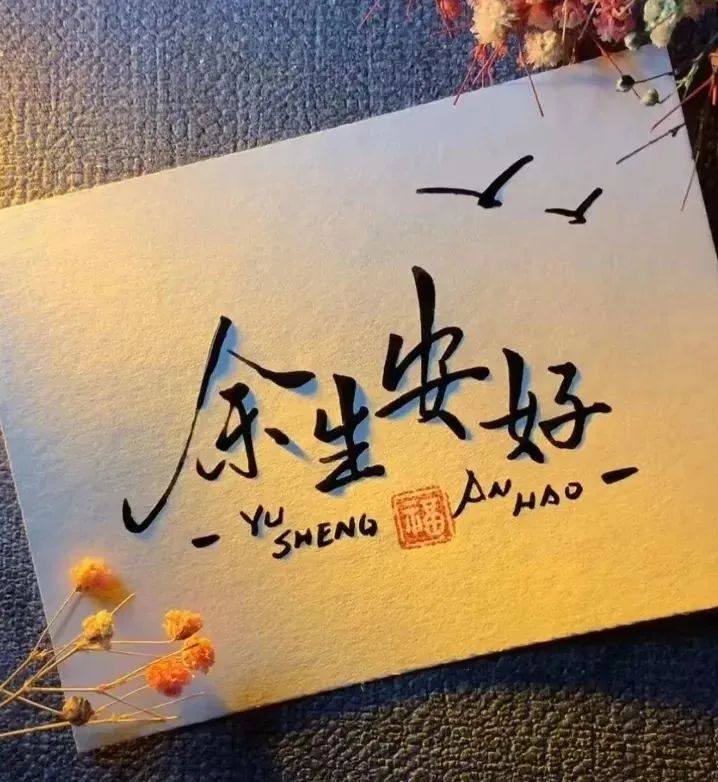 余生安好
- YU SHENG AN HAO -
福